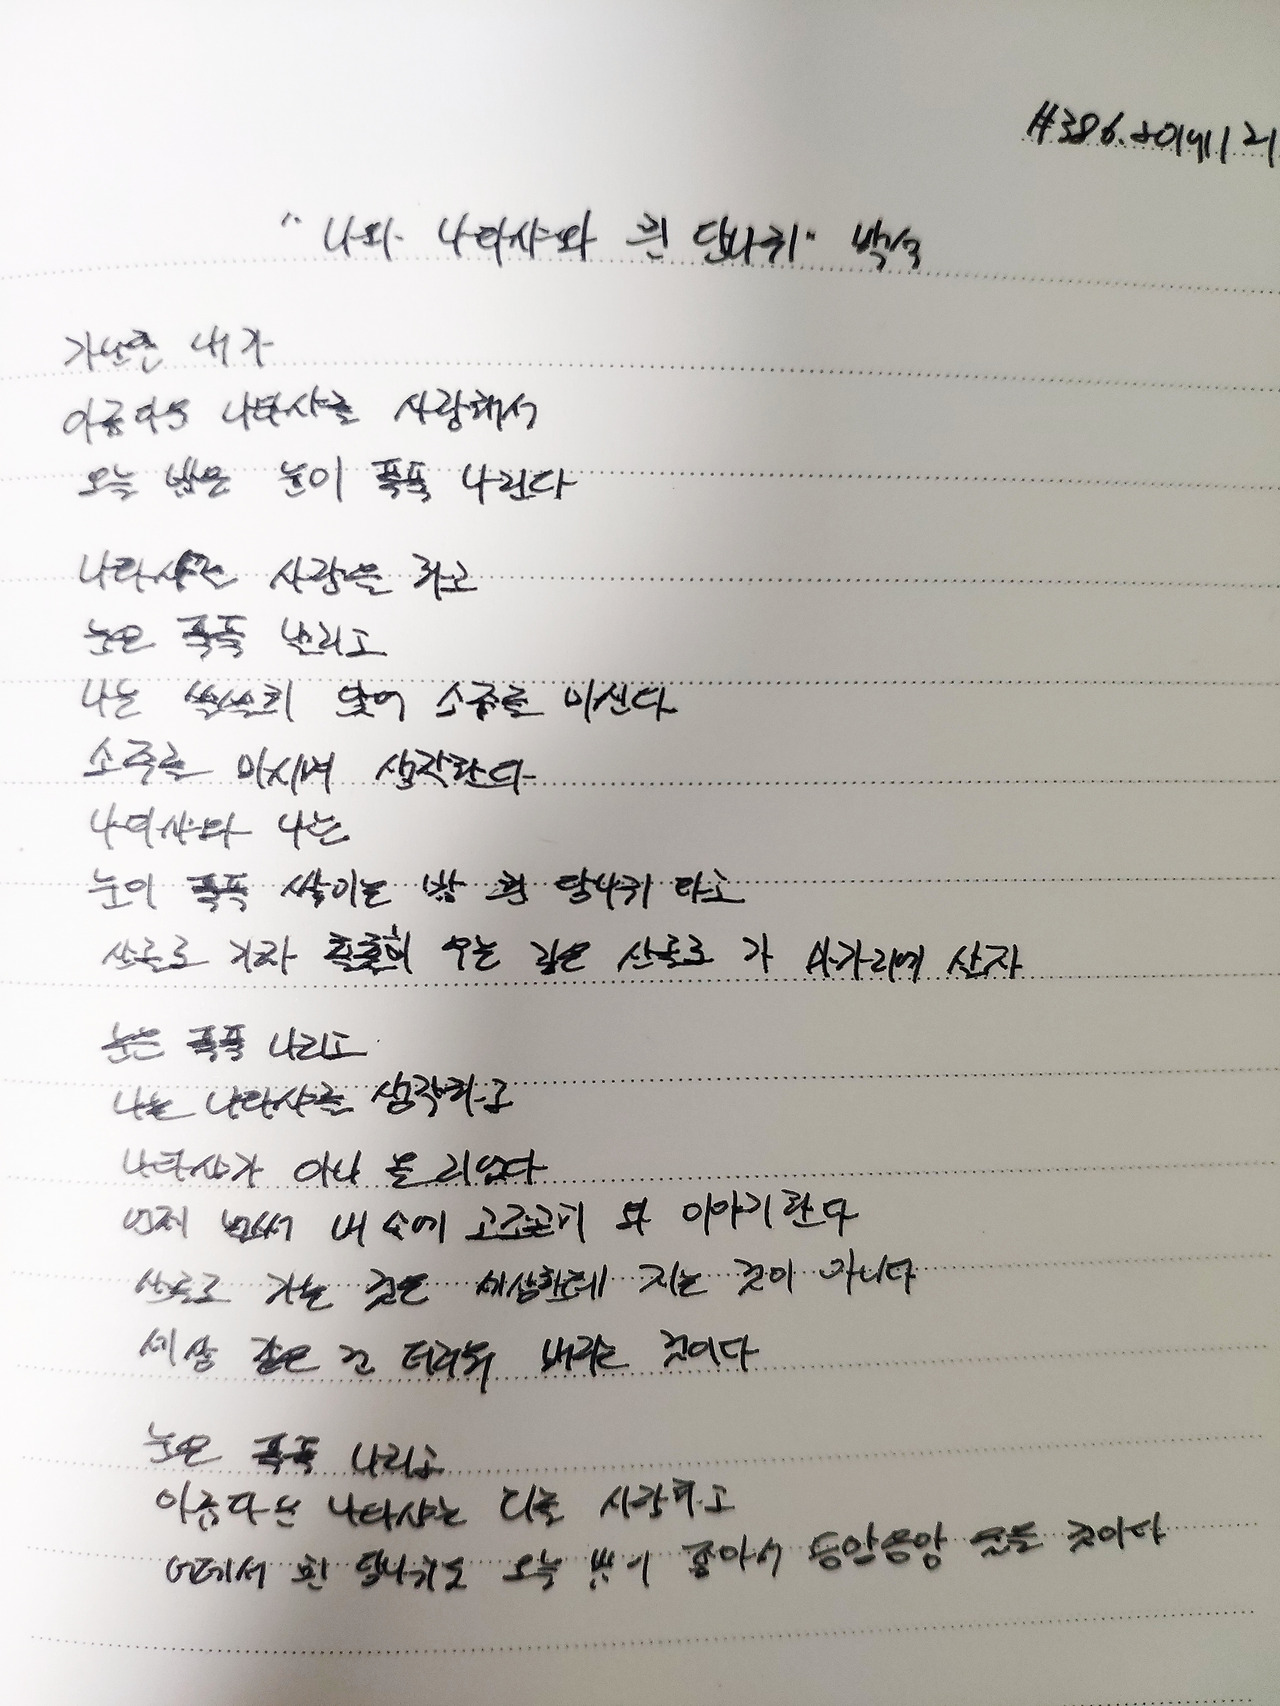 #386.
"나와 나타샤와 흰 당나귀" 백석
가난한 내가
아름다운 나타샤를 사랑해서
오늘 밤은 눈이 푹푹 나린다
나타샤를 사랑은 하고
눈은 푹푹 날리고
나는 쓸쓸히 앉어 소주를 마신다
소주를 마시며 생각한다
나타샤와 나는
눈이 푹푹 쌓이는 밤 흰 당나귀 타고
산골로 가자 출출이 우는 깊은 산골로 가 마가리에 살자
눈은 푹푹 나리고
나는 나타샤를 생각하고
나타샤가 아니 올 리 없다
언제 벌써 내 속에 고조곤히 와 이야기한다
산골로 가는 것은 세상한테 지는 것이 아니다
세상 같은 건 더러워 버리는 것이다
눈은 푹푹 나리고
아름다운 나타샤는 나를 사랑하고
어데서 흰 당나귀도 오늘 밤이 좋아서 응앙응앙 울을 것이다